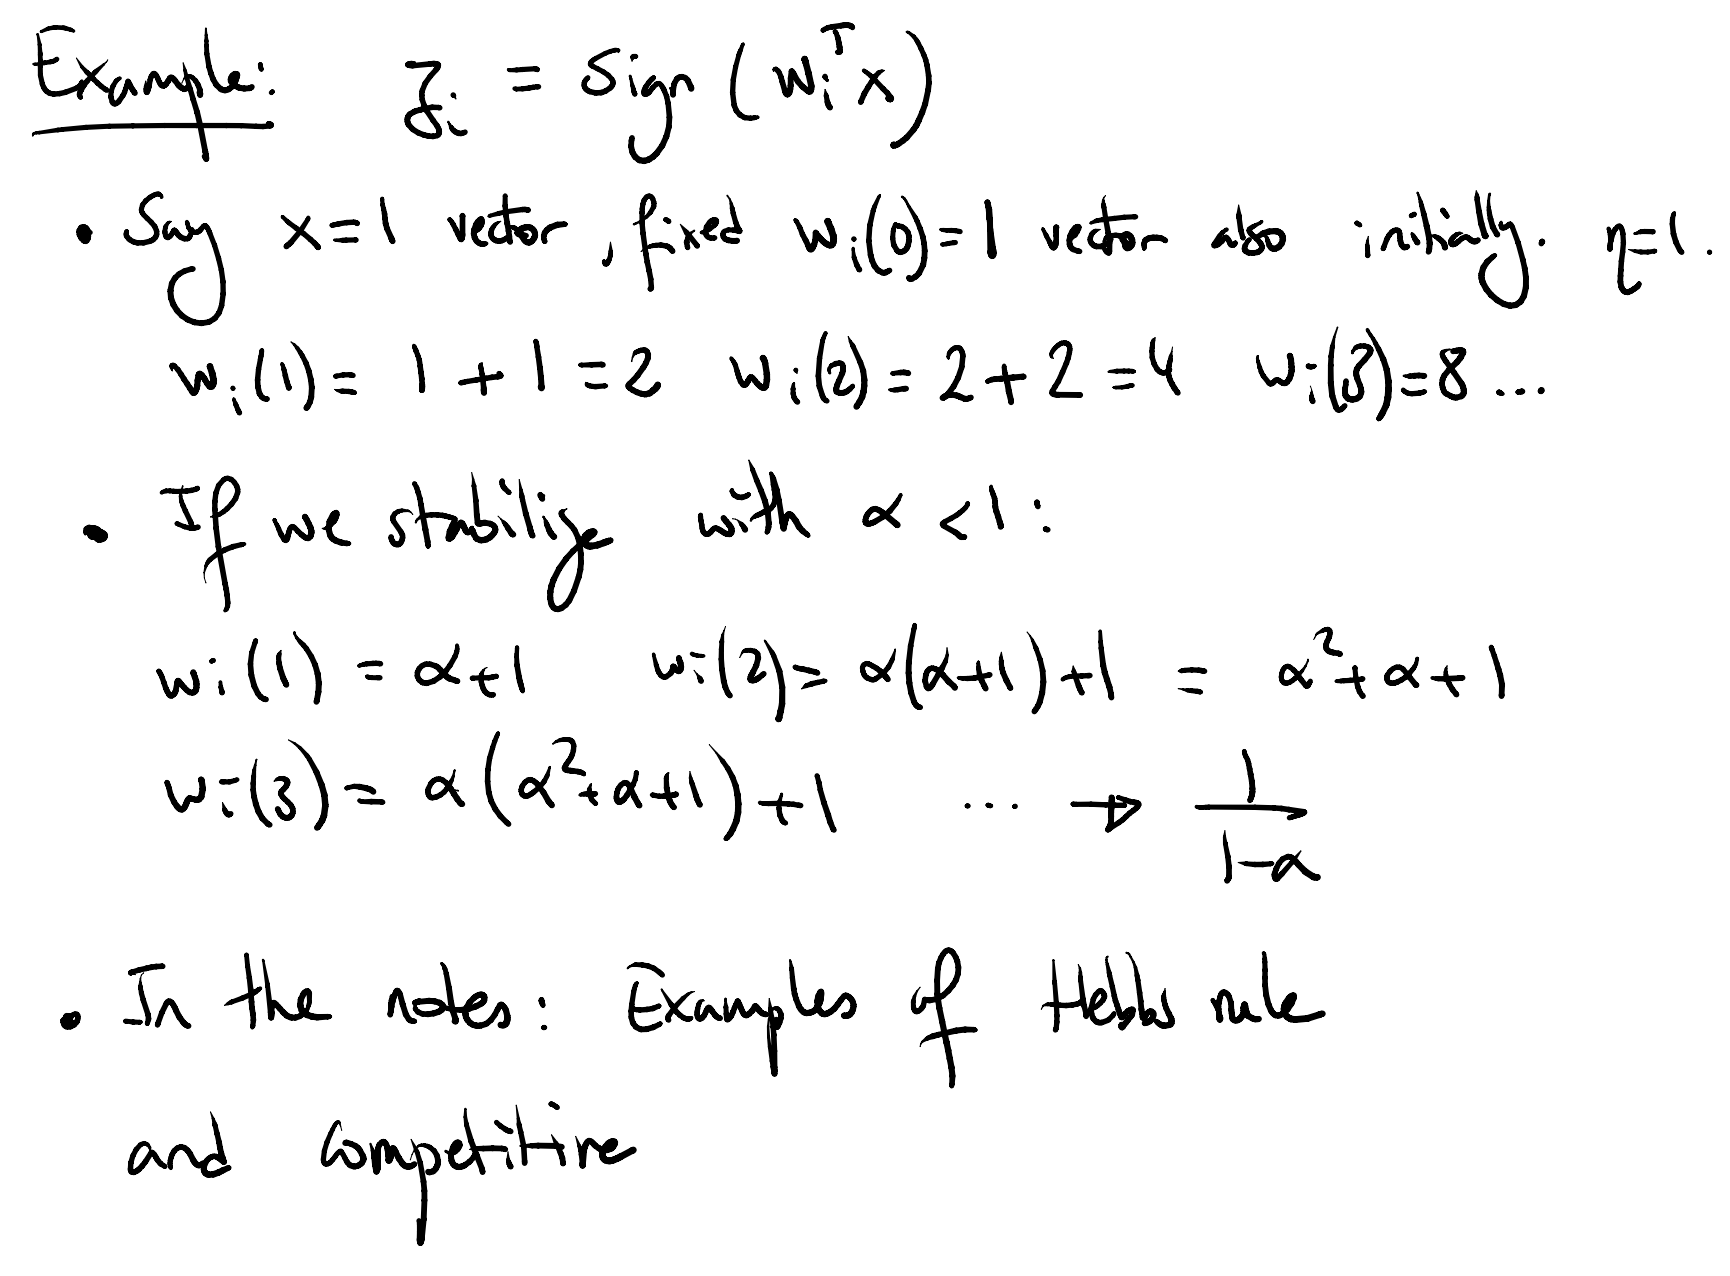 Example: z_i = sign (w_i^T x)
• Say x=1 vector, fixed w_i(0)=1 vector also initially. η=1.
w_i(1)= 1+1=2 w_i(2)=2+2=4 w_i(3)=8 ...
• If we stabilize with α<1:
w_i(1) = α+1 w_i(2)= α(α+1)+1 = α²+α+1
w_i(3)= α(α²+α+1)+1 ... → 1/(1-α)
• In the notes: Examples of Hebbs rule
and competitive